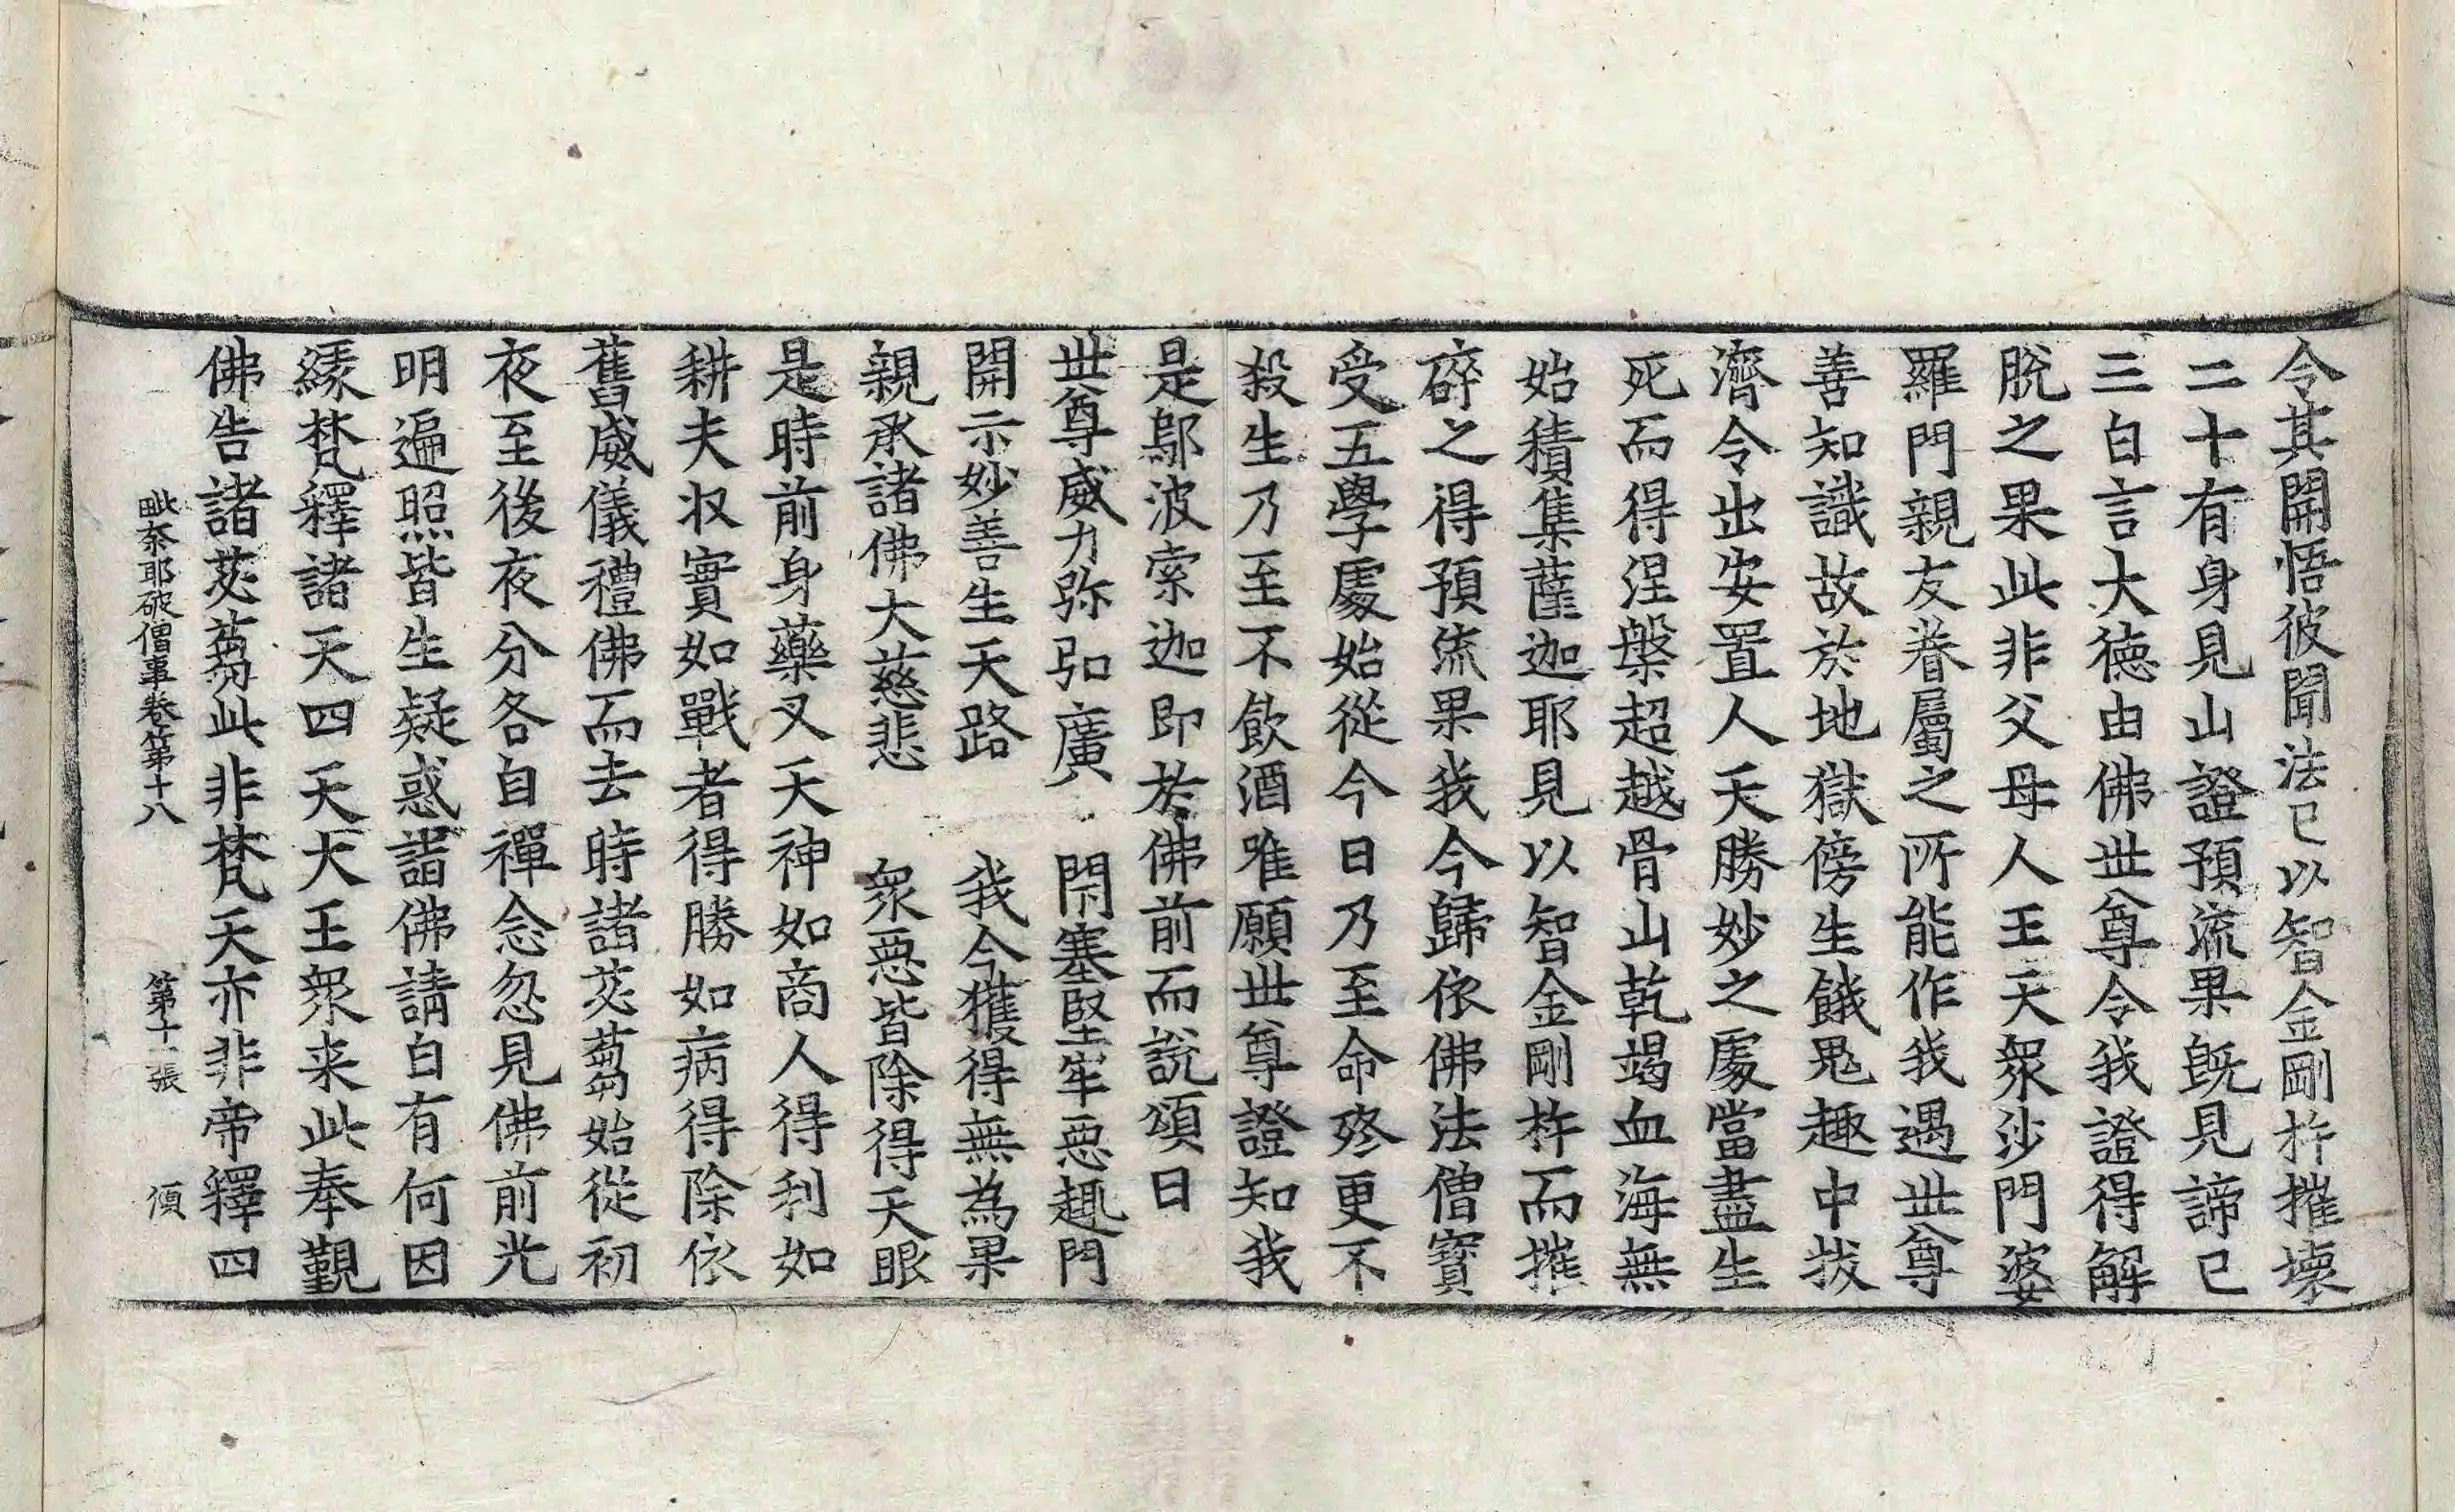 令其開悟彼聞法已以智金剛杵摧壞
二十有身見山證預流果既見諦已
三白言大德由佛世尊令我證得解
脫之果此非父母人王天眾沙門婆
羅門親友眷屬之所能作我遇世尊
善知識故於地獄傍生餓鬼趣中拔
濟令出安置人天勝妙之處當盡生
死而得涅槃超越骨山乾竭血海無
始積集薩迦耶見以智金剛杵而摧
碎之得預流果我今歸依佛法僧寶
受五學處始從今日乃至命終更不
殺生乃至不飲酒唯願世尊證知我
是鄔波索迦即於佛前而說頌曰
世尊威力弥弘廣　閇塞堅牢惡趣門
開示妙善生天路　我今獲得無為果
親承諸佛大慈悲　眾惡皆除得天眼
是時前身藥叉天神如商人得利如
耕夫收實如戰者得勝如病得除依
舊威儀禮佛而去時諸苾蒭始從初
夜至後夜分各自禪念忽見佛前光
明遍照皆生疑惑詣佛請白有何因
緣梵釋諸天四天大王眾来此奉覲
佛告諸苾蒭此非梵天亦非帝釋四
毗奈耶破僧事卷第十八　第十一張　須